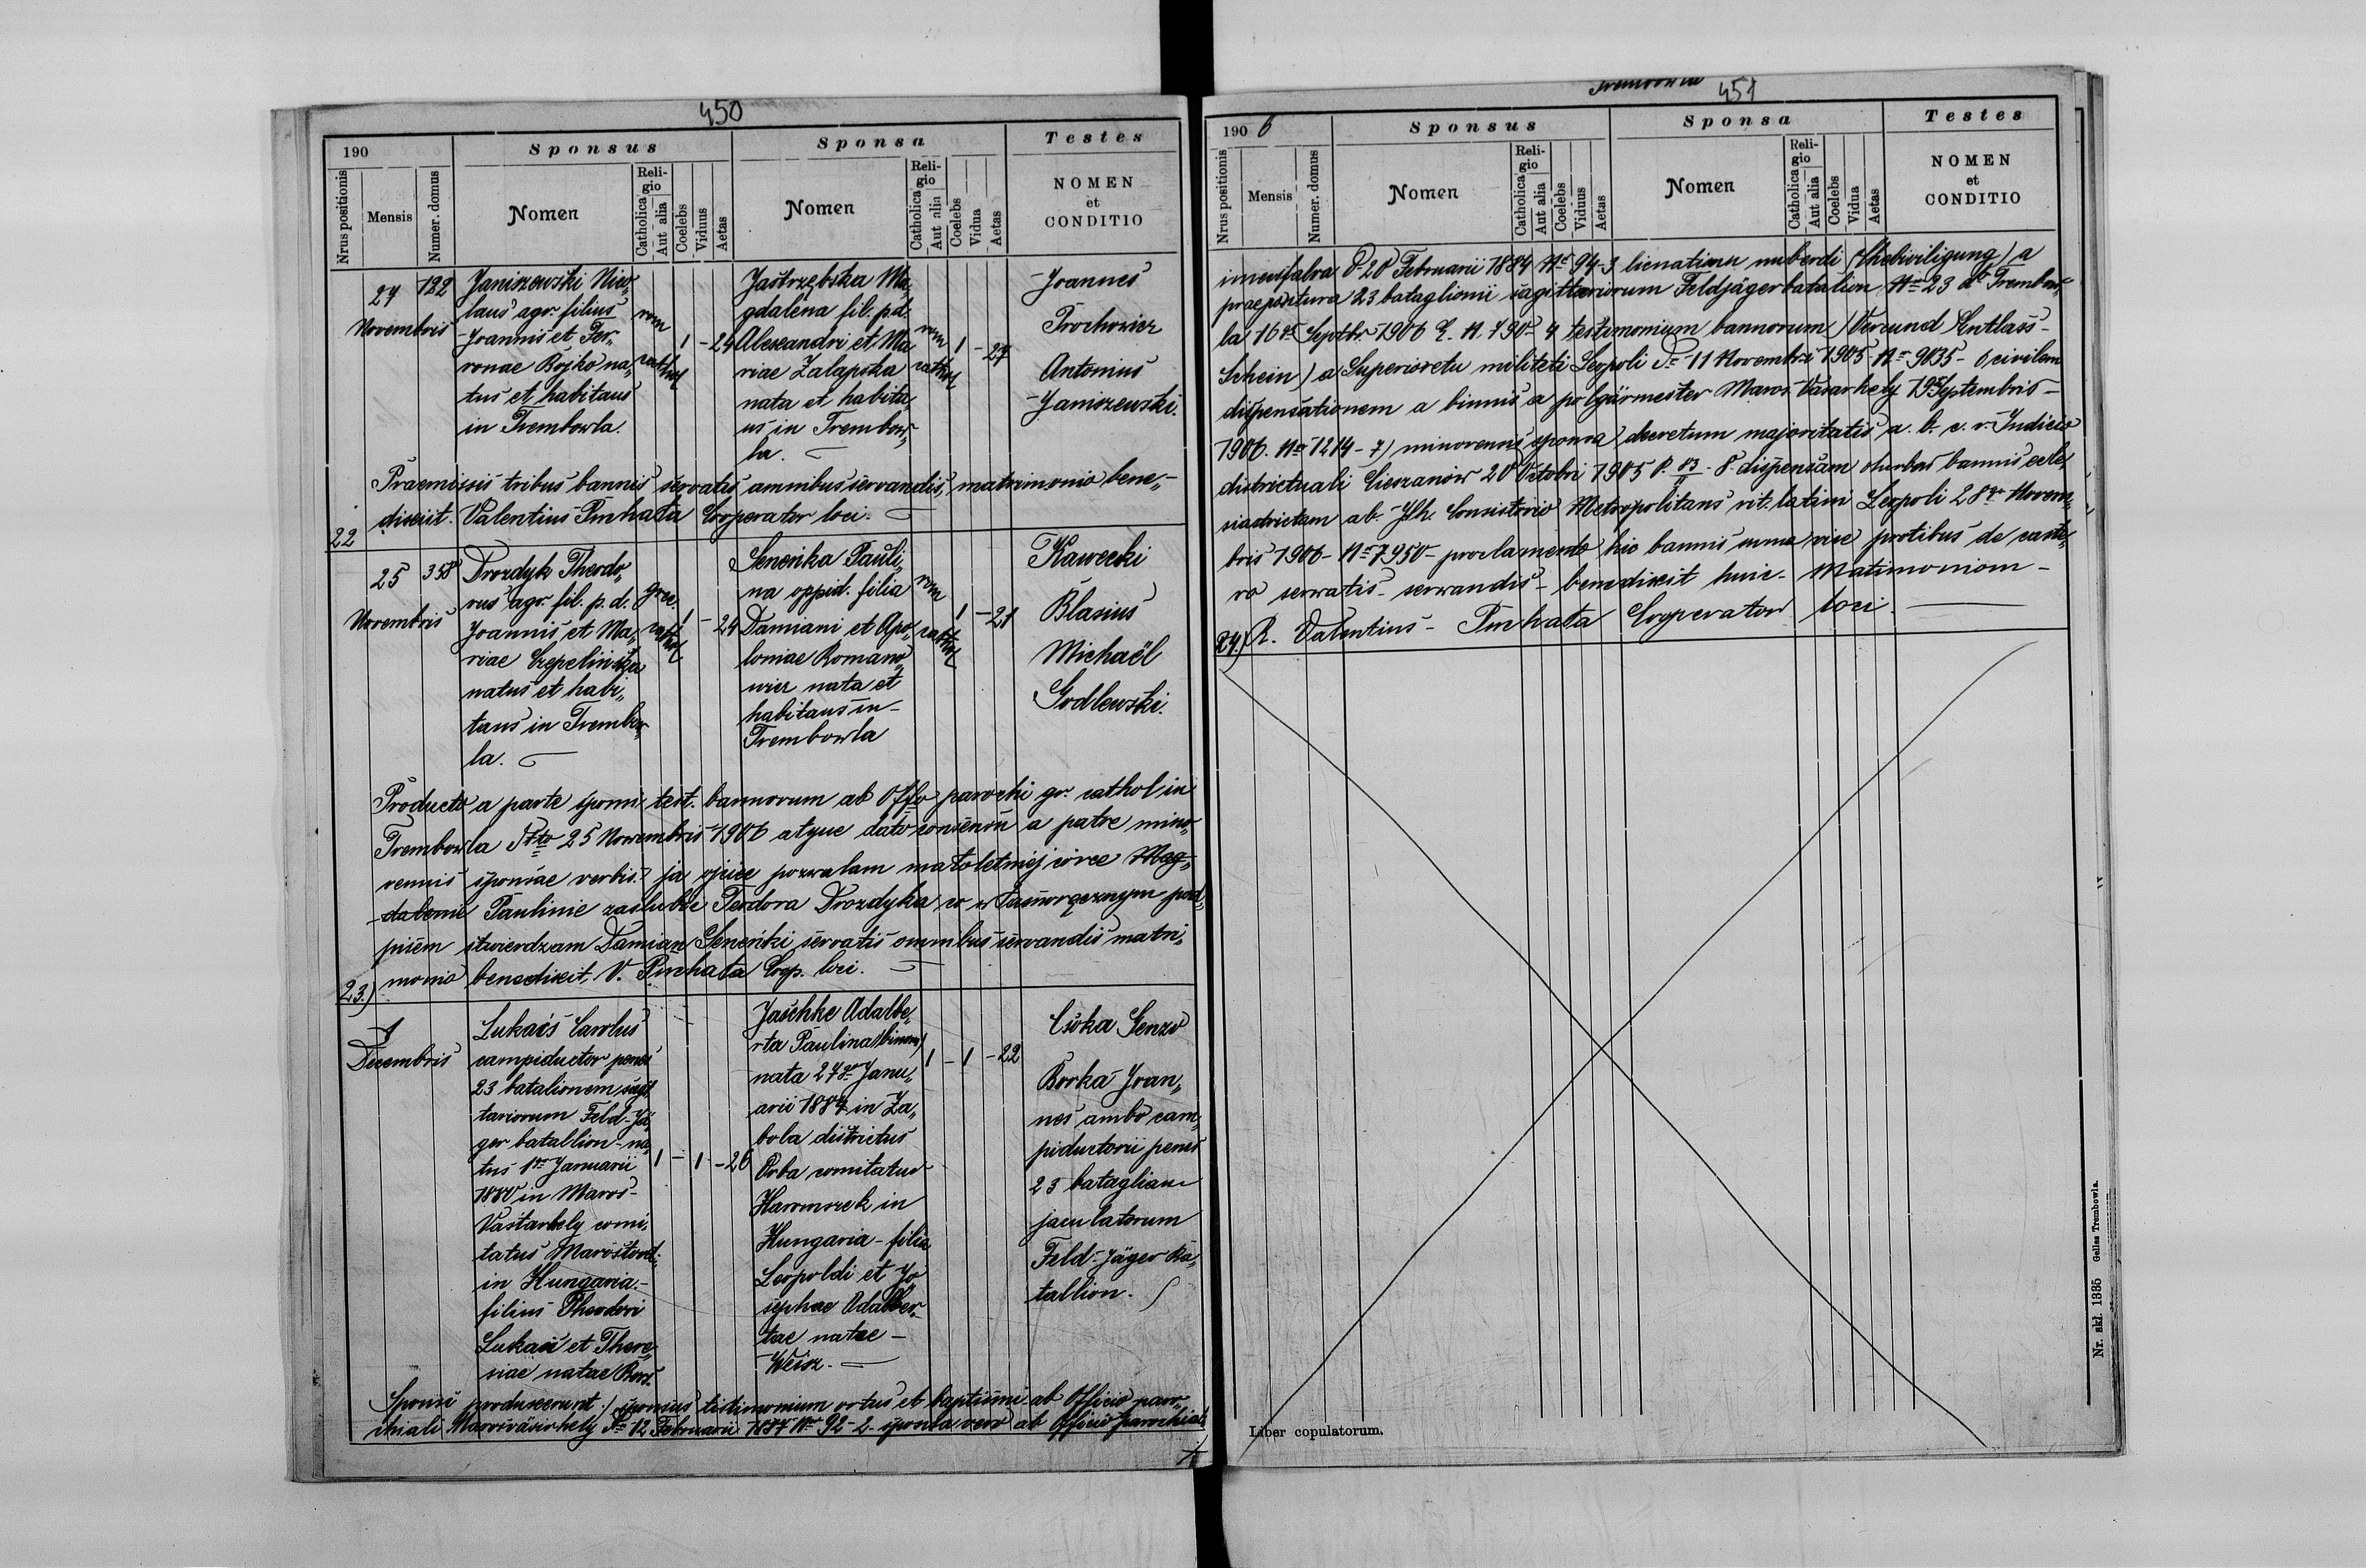 450
190
Sponsus
Sponsa
Testes
Nrus positionis
Mensis
Numer. domus
Nomen
Religio
Catholica
Aut alia
Coelebs
Viduus
Aetas
Nomen
Religio
Catholica
Aut alia
Coelebs
Vidua
Aetas
NOMEN
et
CONDITIO
27
Novembris
122
Janiszewski Nico„
laus agr. filius
Joannis et Pet„
ronae Bojko na„
tus et habitans
in Trembowla.
rom
cathol
1 - 24
Jastrzębska Ma„
gdalena fil. p.d.
Alexandri et Ma„
riae Zalapska
nata et habita„
ns in Trembow„
la.
rom
cathol
1 - 27
Joannes
Prochowicz
Antonius
Janiszewski.
Praemissis tribus bannis servatis omnibus servandis, matrimonio bene„
dixit. Valentius Puchata Cooperator loci.
22
25
Novembris
358
Drozdyk Theodo„
rus agr. fil. p. d.
Joannis et Ma„
riae Czepelińska
natus et habi„
tans in Trembow„
la.
grec.
cathol
1 - 24
Seneńka Pauli„
na oppid. filia
Damiani et Apo„
loniae Romano„
wicz nata et
habitans in
Trembowla
rom
cathol
1 - 21
Kawecki
Blasius
Michaël
Godlewski.
Producto a parte sponsi test. bannorum ab Offo parochi gr. cathol in
Trembowla dtto 25 Novembris 1906 atque dato consensu a patre mino„
rennis sponsae verbis: ja ojciec pozwalam małoletniej córce Mag„
dalenie Paulinie zaślubić Teodora Drozdyka co własnoręcznym pod„
pisem stwierdzam Damian Seneńki servatis omnibus servandis matri„
monio benedixit, V. Puchata Coop. loci.
23.)
1
Decembris
Lukaćs Carolus
campiductor penes
23 batalionem sagit
tariorum Feld-Jä„
ger batallion - na„
tus 1ma Januarii
1880 in Maros-
Vasarhely comi„
tatus Marostord.
in Hungaria -
filius Theodori
Lukaćs et There„
siae natae
1 - 1 - 26
Jaschke Adalbe„
rta Paulina (binom)
nata 27a Janu„
arii 1884 in Za„
bola districtus
Orba comitatus
Haromszek in
Hungaria - filia
Leopoldi et Jo„
sephae Adalber„
tae natae -
Weisz.
1 - 1 - 22
Csoka Genzo
Borka Joan„
nes ambo cam„
piductorii penes
23 batagliam
jaculatorum
Feld-Jäger Ba„
tallion.
Sponsi produxerunt: sponsus testimonium ortus et baptismi ab Officio paro„
chiali Marosvásárhely d. 12 Februarii 1887 No 92 - 2. sponsa vero ab Officio parochiali
Trembowla
451
1906
Sponsus
Sponsa
Testes
Nrus positionis
Mensis
Numer. domus
Nomen
Religio
Catholica
Aut alia
Coelebs
Viduus
Aetas
Nomen
Religio
Catholica
Aut alia
Coelebs
Vidua
Aetas
NOMEN
et
CONDITIO
imeufalva d. 20 Februarii 1884 No 94 - 3 licnatiam nubendi (Ehebiviligung) a
praepositura 23 bataglionii sagittariorum Feldjägerbatalion No 23 Trembow„
la 16a Septbr. 1906 E. N. 790 - 4 testimonium bannorum) Vereund Entlass-
Schein) a Superioretu militeti Leopoli d. 11 Novembri 1905 No 9035 - 6, civilem
dispensationem a binnis a polgármester Maros Vasarhely 19 Septembris -
1906. No 7214 - 7) minorennis sponsa) decretum majoritatis a. b. c. r. Judicio
districtuali Cieszanów 20 Octobri 1905 P. 83/II - 8. dispensam duobus bannis eccle„
siadrictam ab. Illr. Consistorio Metropolitano rit. latini Leopoli 28va Novem„
bris 1906 - No 7950 - proclamanto hic bannis una vice protibus de caete„
ro servatis - serwandis - benedixit huic - Matimoniom -
24.) R. Valentius - Puchata Cooperator loci.
Liber copulatorum.
Nr. skł. 1335 Gelles Trembowla.